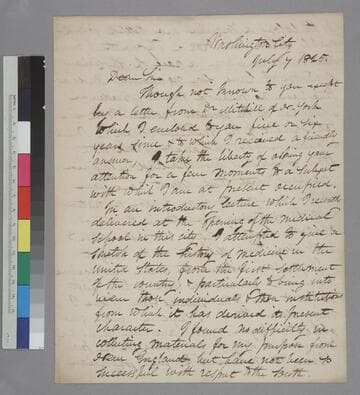 Washington City
July 7 1825.
Dear Sir
Though not known to you except
by a letter from Dr Mitchill of N. York
which I enclosed to you five or six
years since & to which I received a friendly
answer, I take the liberty of asking your
attention for a few moments to a subject
with which I am at present occupied.
In an introductory lecture which I recently
delivered at the opening of the medical
school in this city, I attempted to give a
sketch of the history of medicine in the
United States, from the first settlement
of the country & particularly to bring into
view those individuals & those institutions
from which it has derived its present
character. I found no difficulty in
collecting materials for my purpose from
New England but have not been so
successful with respect to the South.